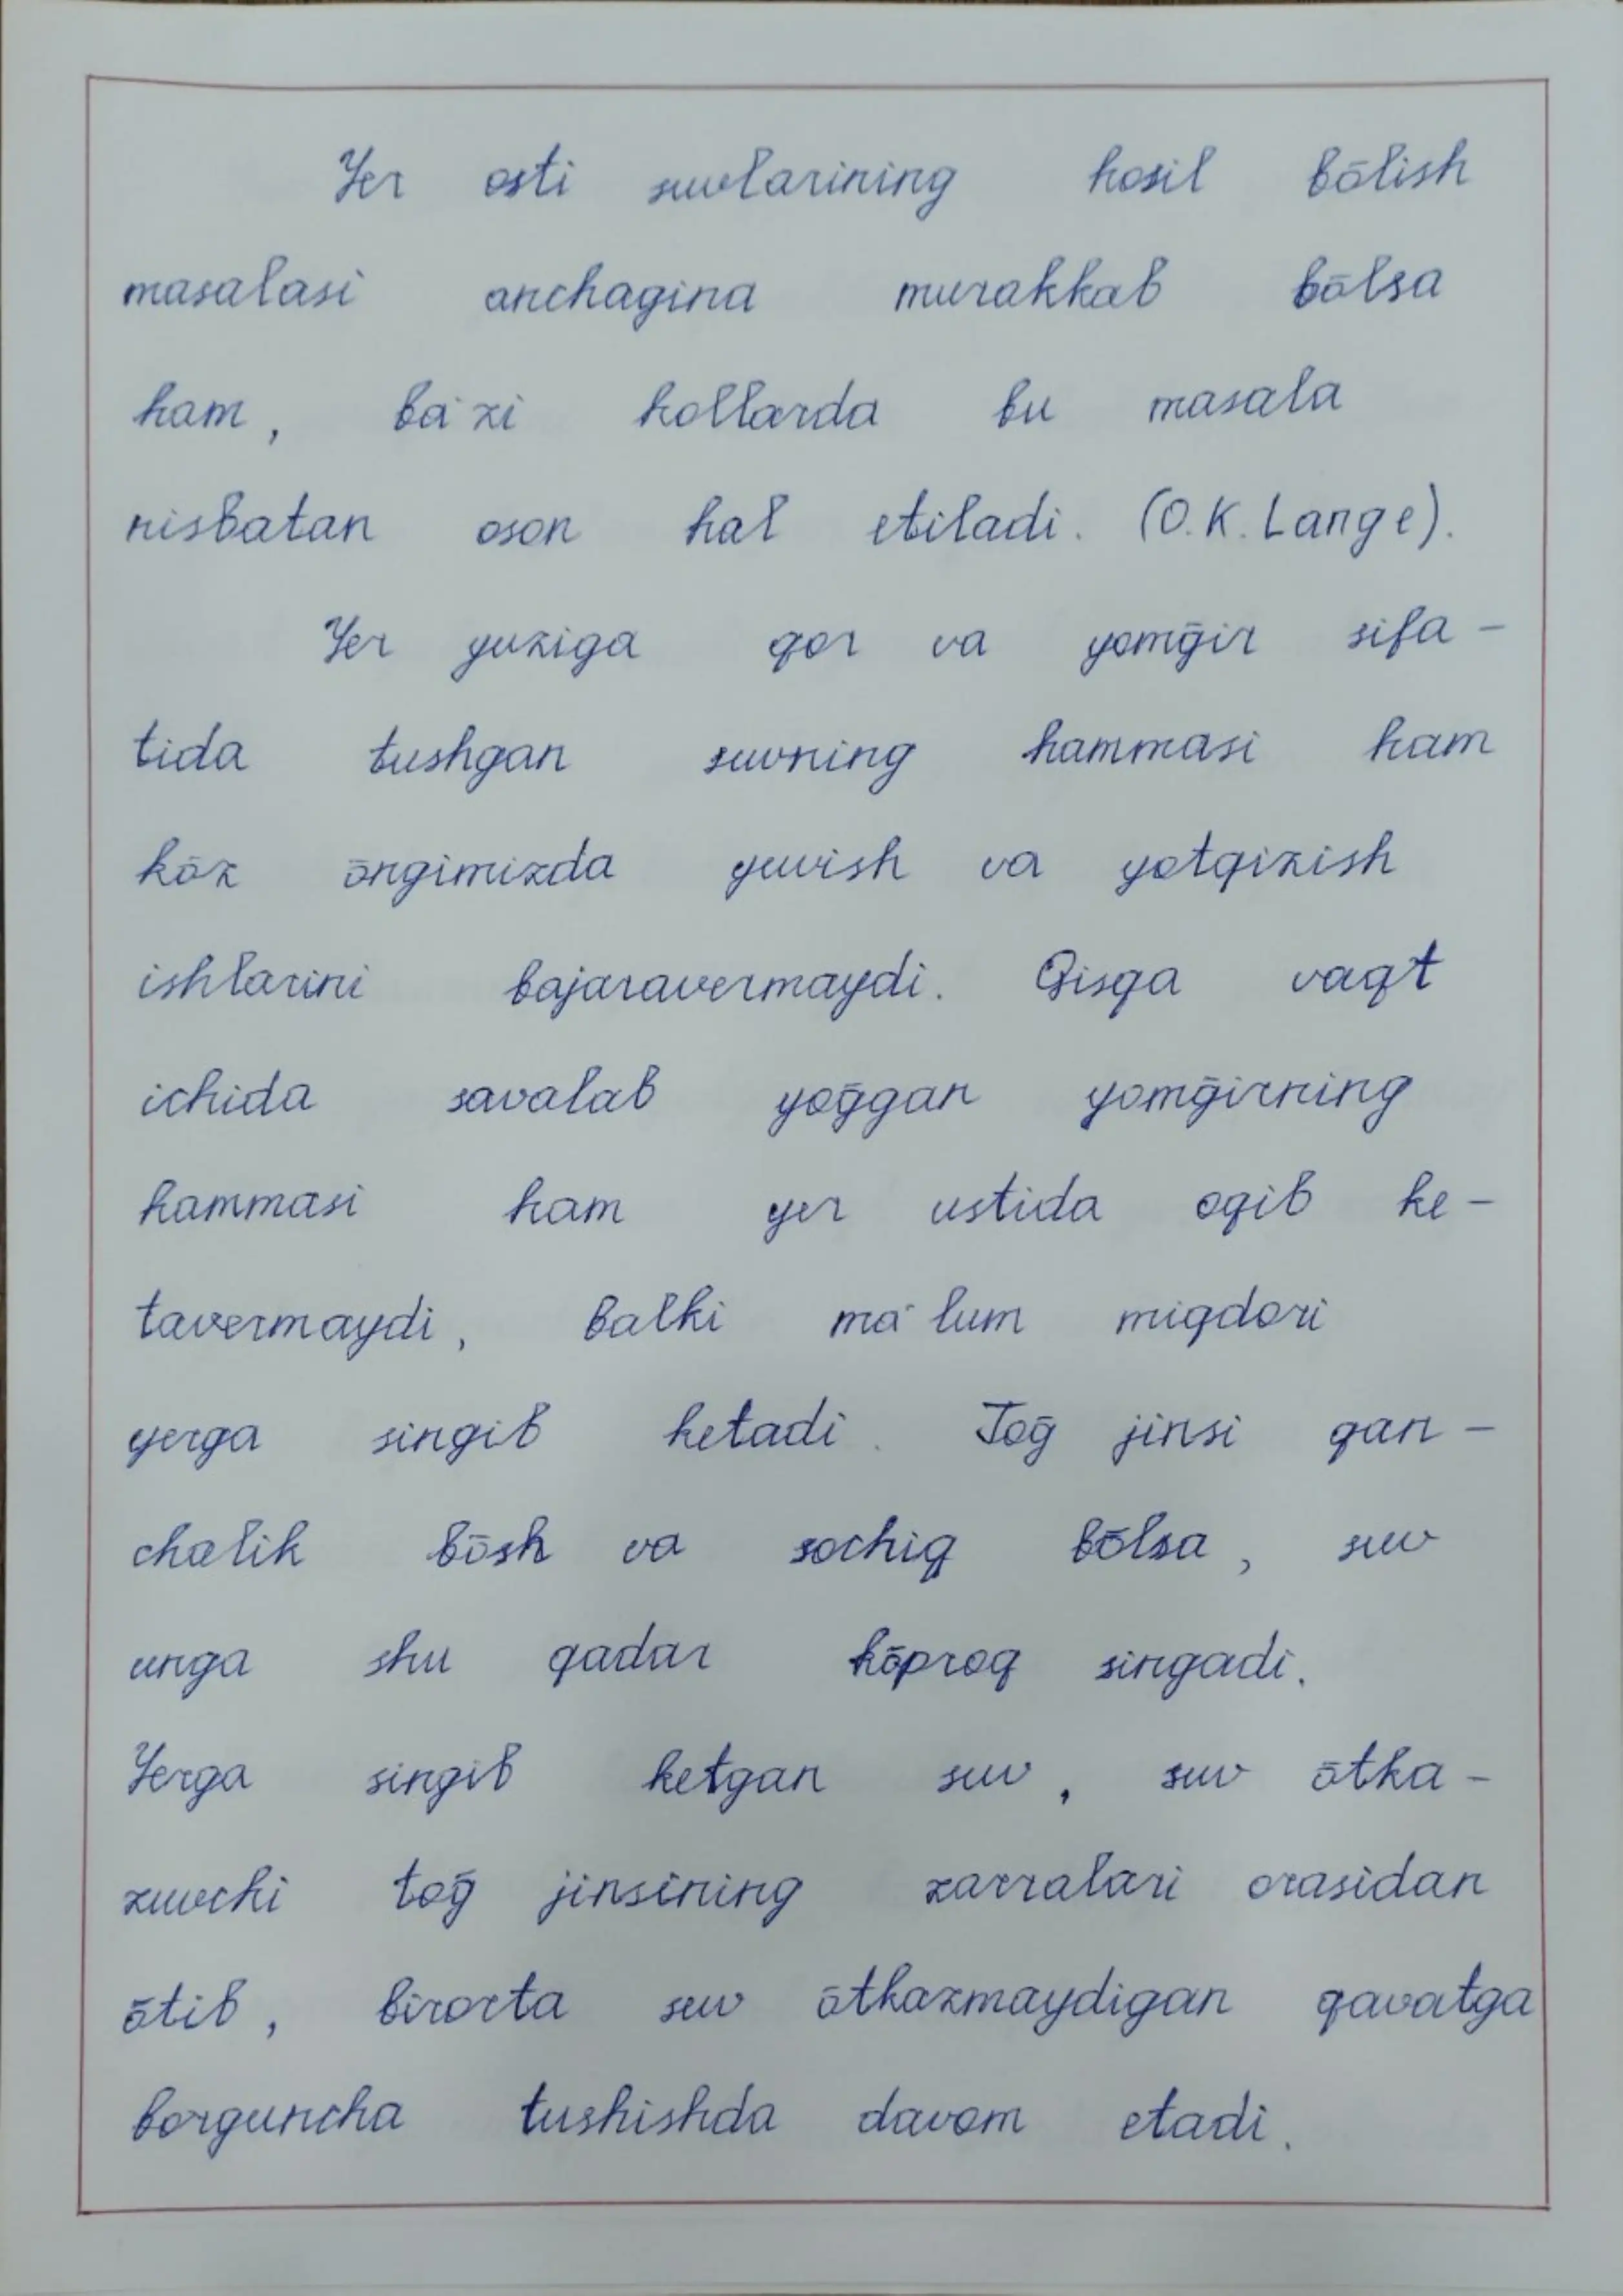 Yer osti suvlarining hosil bōlish
masalasi anchagina murakkab bōlsa
ham, ba'zi hollarda bu masala
nisbatan oson hal etiladi. (O.K.Lange).
Yer yuziga qor va yomḡir sifa-
tida tushgan suvning hammasi ham
kōz ōngimizda yuvish va yotqizish
ishlarini bajaravermaydi. Qisqa vaqt
ichida savalab yoḡgan yomḡirning
hammasi ham yer ustida oqib ke-
tavermaydi, balki ma'lum miqdori
yerga singib ketadi. Toḡ jinsi qan-
chalik bōsh va sochiq bōlsa, suv
unga shu qadar kōproq singadi.
Yerga singib ketgan suv, suv ōtka-
zuvchi toḡ jinsining zarralari orasidan
ōtib, birorta suv ōtkazmaydigan qavatga
borguncha tushishda davom etadi.